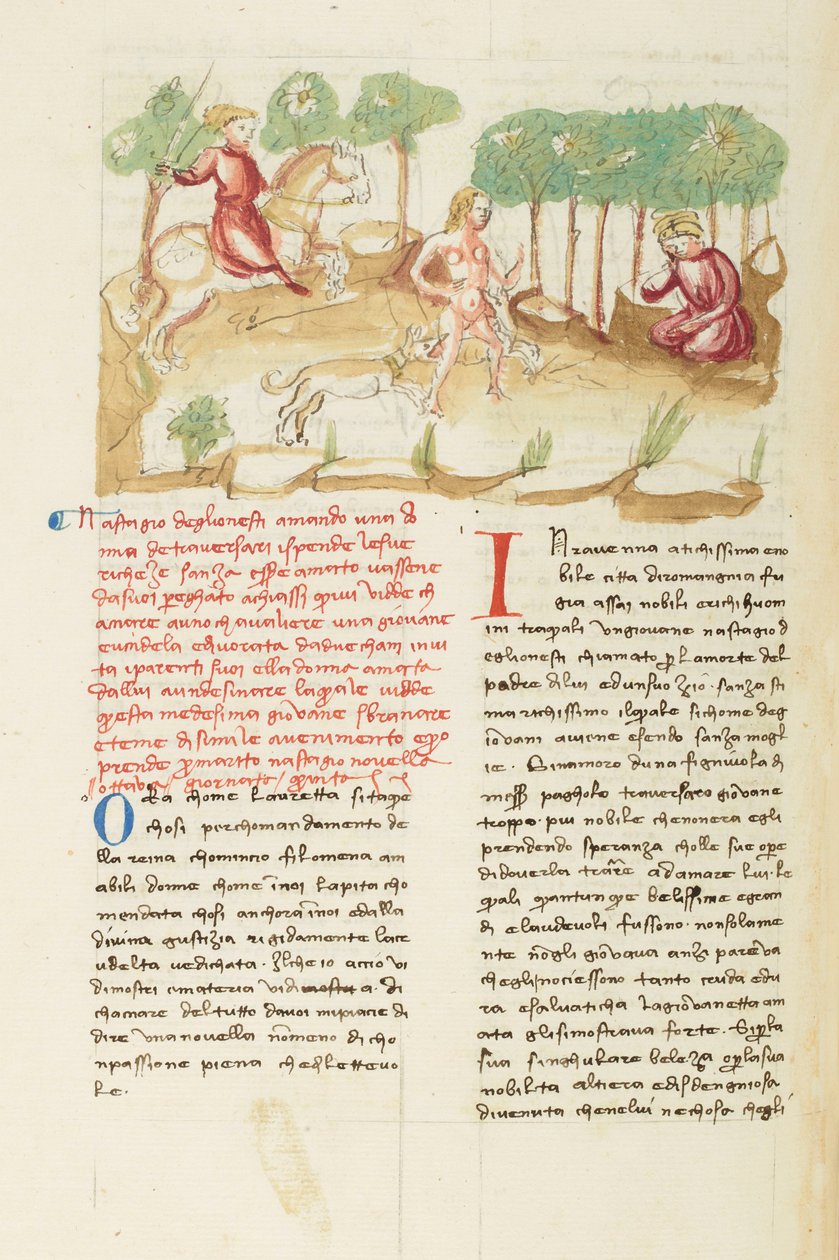 Nastagio deglionesti amando una do
nna detraversari ispende lesue
richeze sanza esse amato vassene
dasuoi preghato achiassi quivi vidde ch
aciare auno chavaliere una giovane
eucidela edivorata dadue chani invi
ta iparenti suoi ella donna amata
dallui aundesinare laquale vidde
questa medesima giovane sbranare
eteme disimile avenimento epo
prende p marito nastagio novella
ottava giornata quinta
Ora chome lauretta sitaque
chosi perchomandamento de
lla reina chomincio filomena am
abili donne chome inoi lapita cho
mendata chosi anchora inoi edalla
divina giustizia rigidamente lacr
udelta vedichata. Ilche io accio vi
dimostri emateria vidi a. di
chaciare deltutto davoi mipiacie di
dire una novella nomeno di cho
npassione piena che dilettevo
le.
In ravenna atichissima eno
bile citta diromangnia fu
gia assai nobili erichi huom
ini traquali ungiovane nastagio d
eglionesti chiamato p lamorte del
padre dilui edunsuo zio. sanza sti
ma richissimo ilquale sichome deg
iovani aviene esendo sanza mogl
ie. Sinamoro duna figniuola di
mess pagholo traversaro giovane
troppo piu nobile chenonera egli
prendendo speranza cholle sue opere
didoverla trarre adamare lui. le
quali quantunque belissime egran
di elaudevoli fussono. nonsolame
nte nogli giovava anzi pareva
cheglinociessono tanto cruda edu
ra esalvaticha lagiovanetta am
ata glisimostrava forte. Si p la
sua singhulare beleza o p lasua
nobilta altiera edisdengniosa
divenuta chenelui nechosa chegli